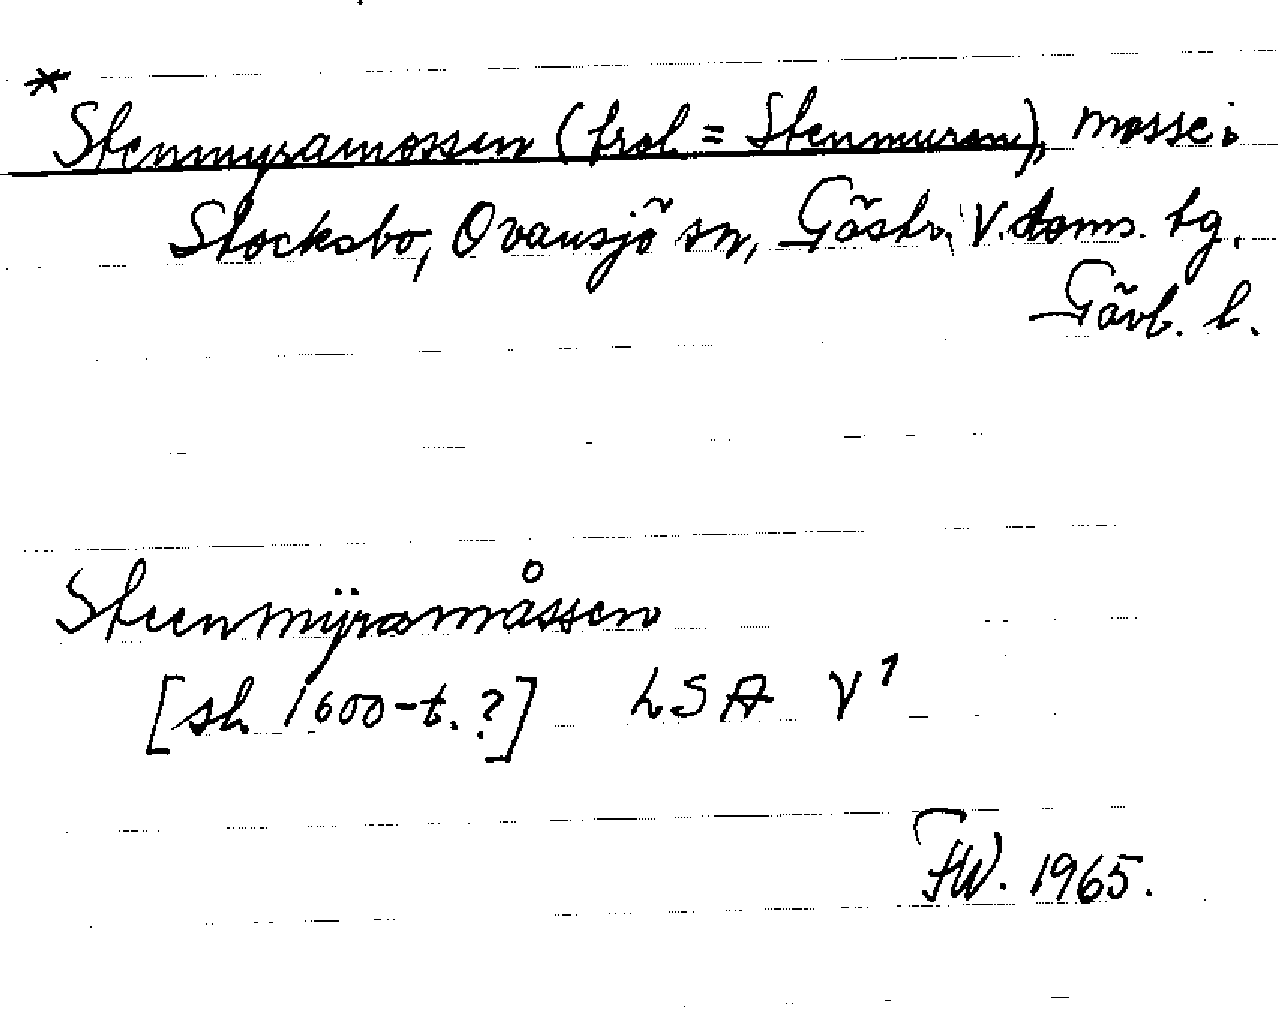 *
Stenmyramossen (trol = Stenmuren), mosse i
Stocksbo, Ovansjö sn, Gästr. V. doms. tg.
Gävb. l.
Steenmÿramåssen
[sl. 1600-t.?] LSA V¹
FW. 1965.